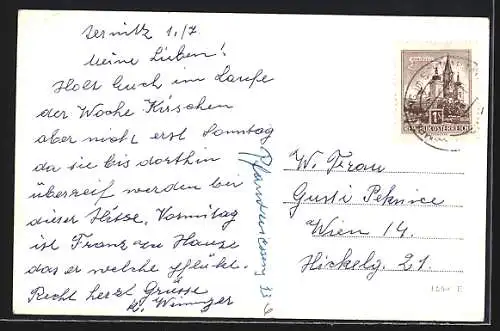 Ternitz 1./7.
Meine Lieben!
Holt Euch im Laufe
der Woche Kirschen
aber nicht erst Sonntag
da sie bis dorthin
überreif werden bei
dieser Hitze. Vormittag
ist Franz zu Hause
das er welche pflükt.
Recht herzl Grüsse
W. Frau
Gusti Peknice
Wien 14.
Hickelg. 21.
REPUBLIK ÖSTERREICH